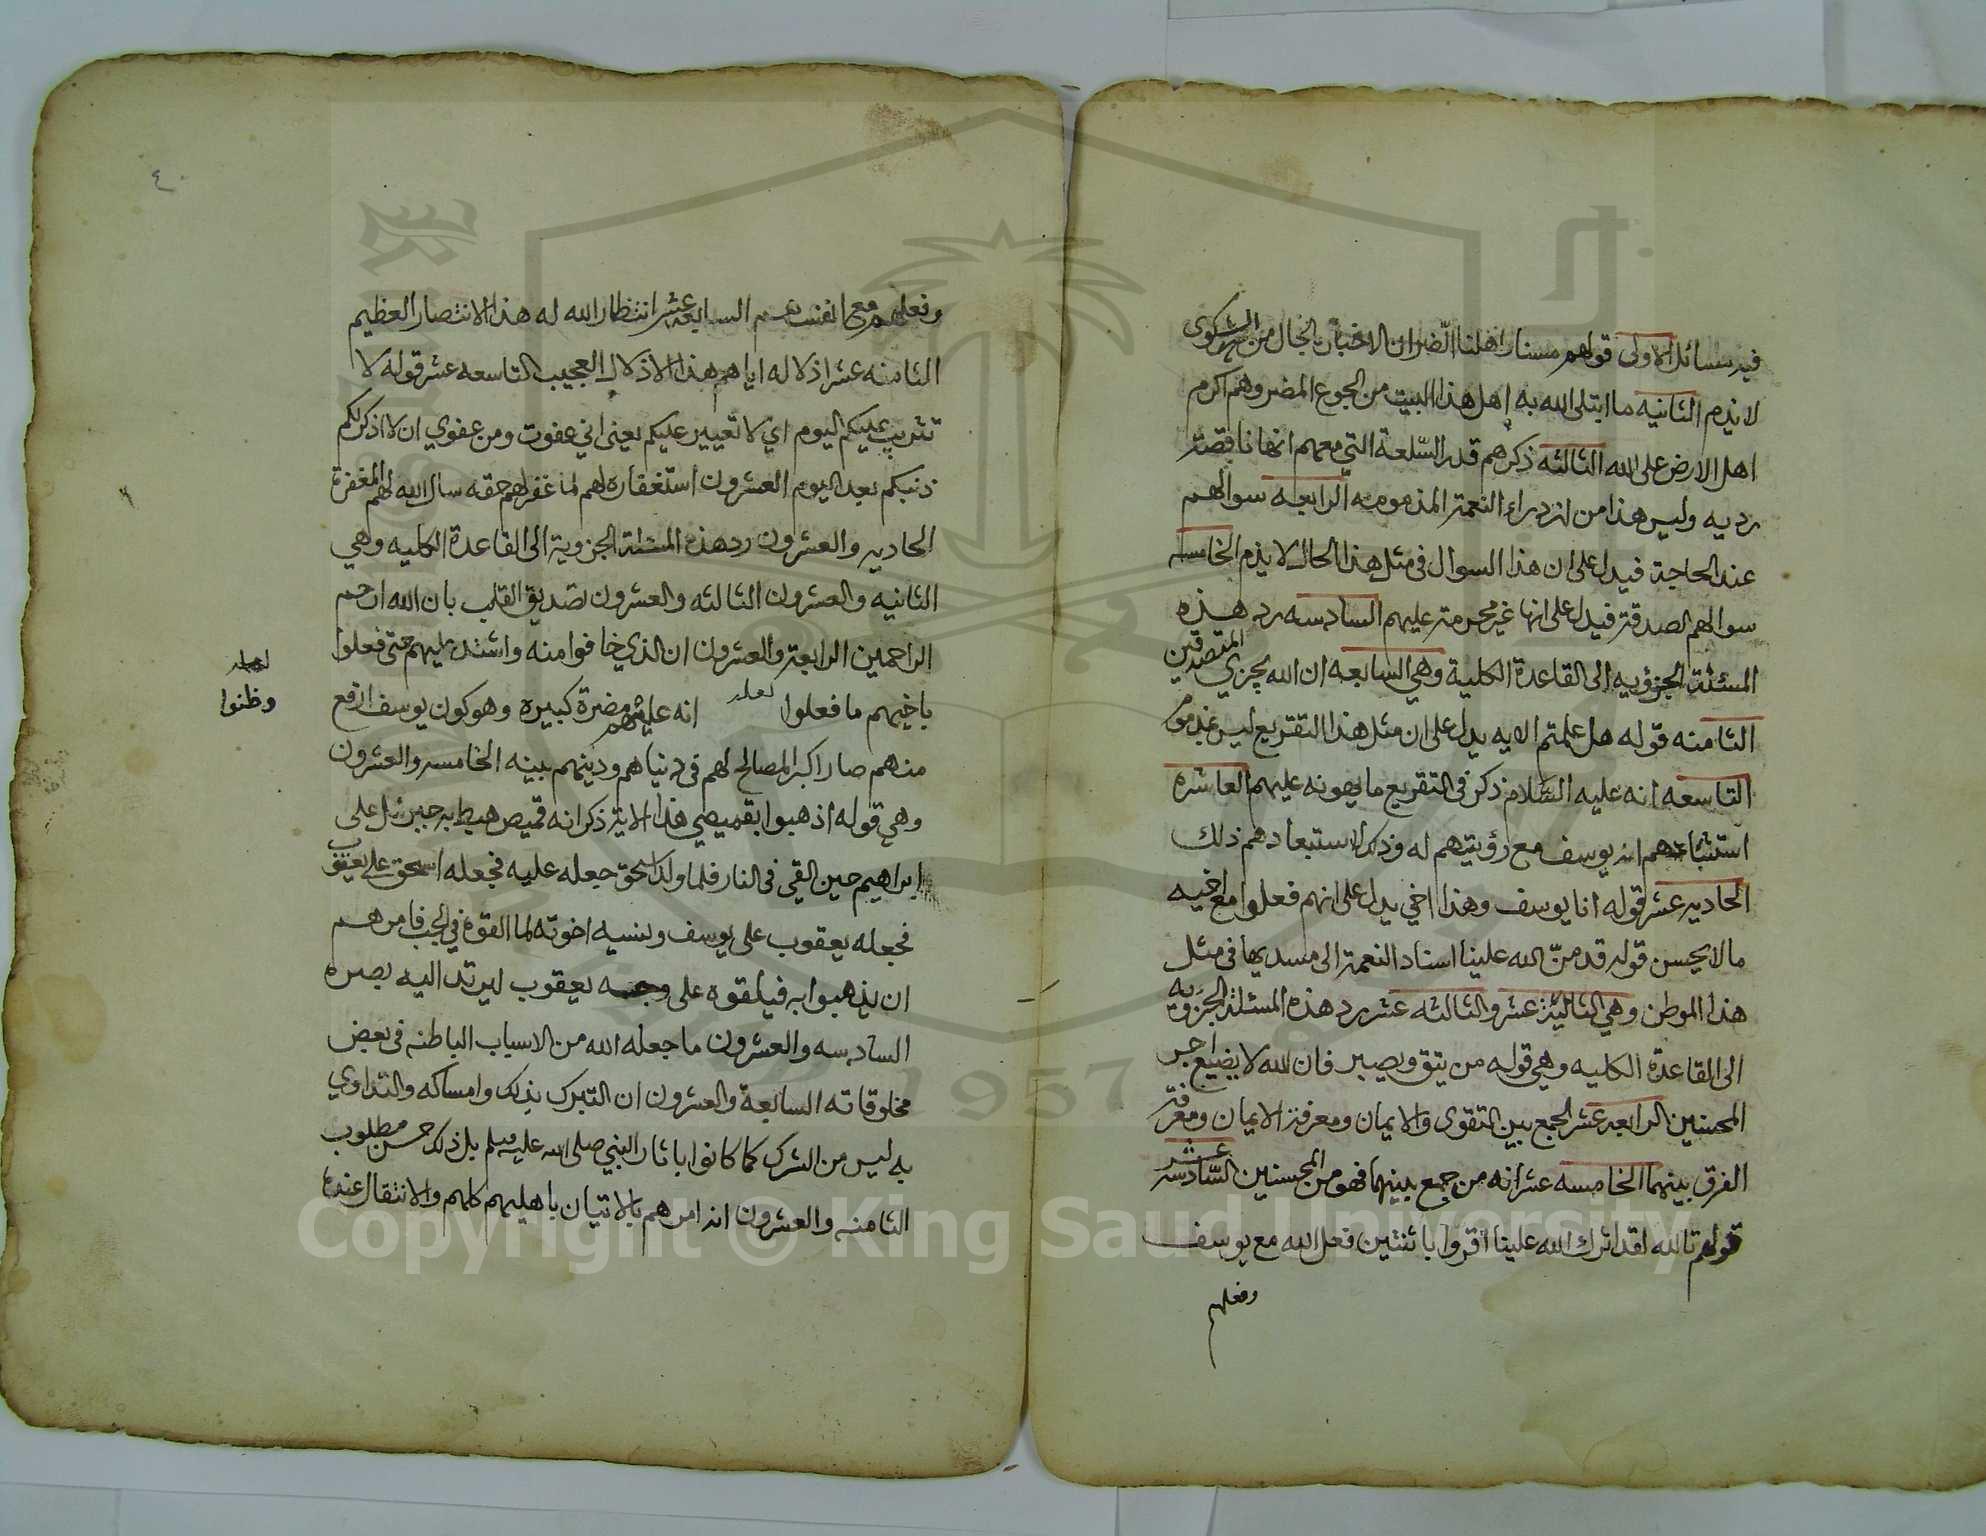 فيه مسائل الاولى قولهم مسنا واهلنا الضر ان الاخبار بالحال من الشكوى
لا يذم الثانيه ما ابتلى الله به اهل هذا البيت من الجوع المضر وهم اكرم
اهل الارض على الله الثالثه ذكرهم قدر السلعة التي معهم انها ناقصة
رديه وليس هذا من ازدراء النعمة المذمومه الرابعه سوالهم
عند الحاجة فيدل على ان هذا السوال في مثل هذا الحال لا يذم الخامسه
سوالهم الصدقة فيدل على انها غير محرمة عليهم السادسه رد هذه
المسئلة الجزؤيه الى القاعدة الكلية وهي السابعه ان الله يجزي المتصدقين
الثامنه قوله هل علمتم الايه يدل على ان مثل هذا التقريع ليس بمذموم
التاسعه انه عليه السلام ذكر في التقريع ما يهونه عليهم العاشره
استثباتهم انه يوسف مع رؤيتهم له وذكر لاستبعادهم ذلك
الحاديه عشر قوله انا يوسف وهذا اخي يدل على انهم فعلوا مع اخيه
ما لا يحسن قوله قد من الله علينا اسناد النعمة الى مسديها في مثل
هذا الموطن وهي الثانية عشر والثالثه عشر رد هذه المسئلة الجزويه
الى القاعدة الكليه وهي قوله من يتق ويصبر فان الله لا يضيع اجر
المحسنين الرابعه عشر الجمع بين التقوى والايمان ومعرفة الايمان ومعرفة
الفرق بينهما الخامسه عشر انه من جمع بينهما فهو من المحسنين السادسه عشر
قولهم تالله لقد اثرك الله علينا اقروا باثنتين فعل الله مع يوسف
وفعلهم
٤٠
وفعلهم مع انفسهم السابعه عشر انتظار الله له هذا الانتصار العظيم
الثامنه عشر اذلاله اياهم هذا الاذلال العجيب التاسعه عشر قوله لا
تثريب عليكم اليوم اي لا تعيير عليكم يعني اني عفوت ومن عفوي ان لا اذكر لكم
ذنبكم بعد اليوم العشرون استغفاره لهم لما غفر لهم حقه سال الله لهم المغفرة
الحاديه والعشرون رد هذه المسئلة الجزوية الى القاعدة الكليه وهي
الثانيه والعشرون الثالثه والعشرون تصديق القلب بان الله ارحم
الراحمين الرابعة والعشرون ان الذي خافوا منه واشتد عليهم حتى فعلوا
باخيهم ما فعلوا لعله انه عليهم مضرة كبيره وهو كون يوسف ارفع
لعله
وظنوا
منهم صار اكبر المصالح لهم في دنياهم ودينهم ببينه الخامسه والعشرون
وهي قوله اذهبوا بقميصي هذا الاية ذكر انه قميص هبط به جبرئل على
ابراهيم حين القي في النار فلما ولد اسحق جعله عليه فجعله اسحق على يعقوب
فجعله يعقوب على يوسف ونسيه اخوته لما القوة في الجب فامرهم
ان يذهبوا به فيلقوه على وجه يعقوب ليرتد اليه بصره
السادسه والعشرون ما جعله الله من الاسباب الباطنه في بعض
مخلوقاته السابعة والعشرون ان التبرك بذلك وامساكه والتداوي
به ليس من الشرك كما كانوا باثار النبي صلى الله عليه وسلم بل ذلك حسن مطلوب
الثامنه والعشرون انه امرهم بالاتيان باهليهم كلهم والانتقال عنده
1957
Copyright © King Saud University